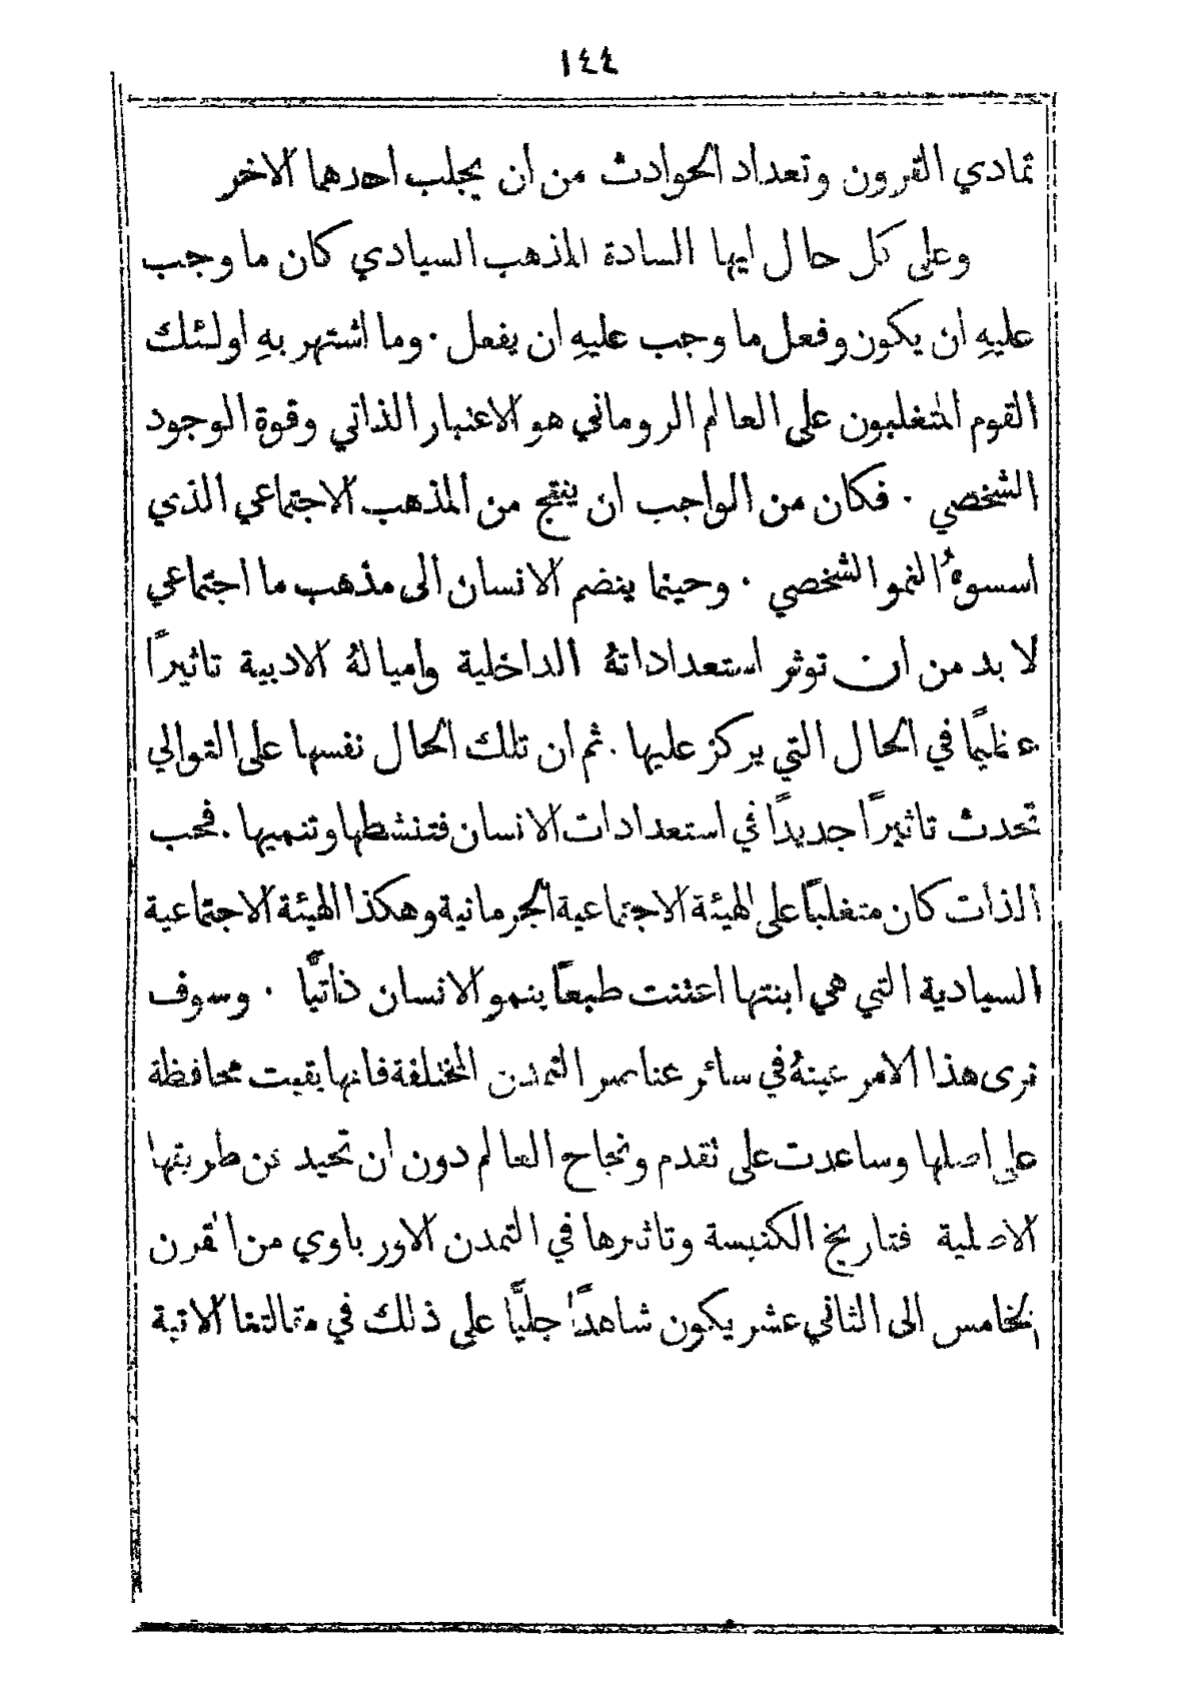 ١٤٤
تمادي القرون وتعداد الحوادث من ان يجلب احدهما الاخر
وعلى كل حال ايها السادة المذهب السيادي كان ما وجب
عليهِ ان يكون وفعل ما وجب عليهِ ان يفعل · وما اشتهر بهِ اولئك
القوم المتغلبون على العالم الروماني هو الاعتبار الذاتي وقوة الوجود
الشخصي · فكان من الواجب ان ينتج من المذهب الاجتماعي الذي
اسسوهُ النمو الشخصي · وحينما ينضم الانسان الى مذهب ما اجتماعي
لا بد من ان توثر استعداداتهُ الداخلية واميالهُ الادبية تاثيرًا
عظيمًا في الحال التي يركز عليها · ثم ان تلك الحال نفسها على التوالي
تحدث تاثيرًا جديدًا في استعدادات الانسان فتنشطها وتنميها · فحب
الذات كان متغلبًا على الهيئة الاجتماعية الجرمانية وهكذا الهيئة الاجتماعية
السيادية التي هي ابنتها اعتنت طبعًا بنمو الانسان ذاتيًّا · وسوف
نرى هذا الامر عينهُ في سائر عناصر التمدن المختلفة فانها بقيت محافظة
على اصلها وساعدت على تقدم ونجاح العالم دون ان تحيد عن طريقها
الاصلية فتاريخ الكنيسة وتاثيرها في التمدن الاورباوي من القرن
الخامس الى الثاني عشر يكون شاهدًا جليًّا على ذلك في مقالتنا الاتية